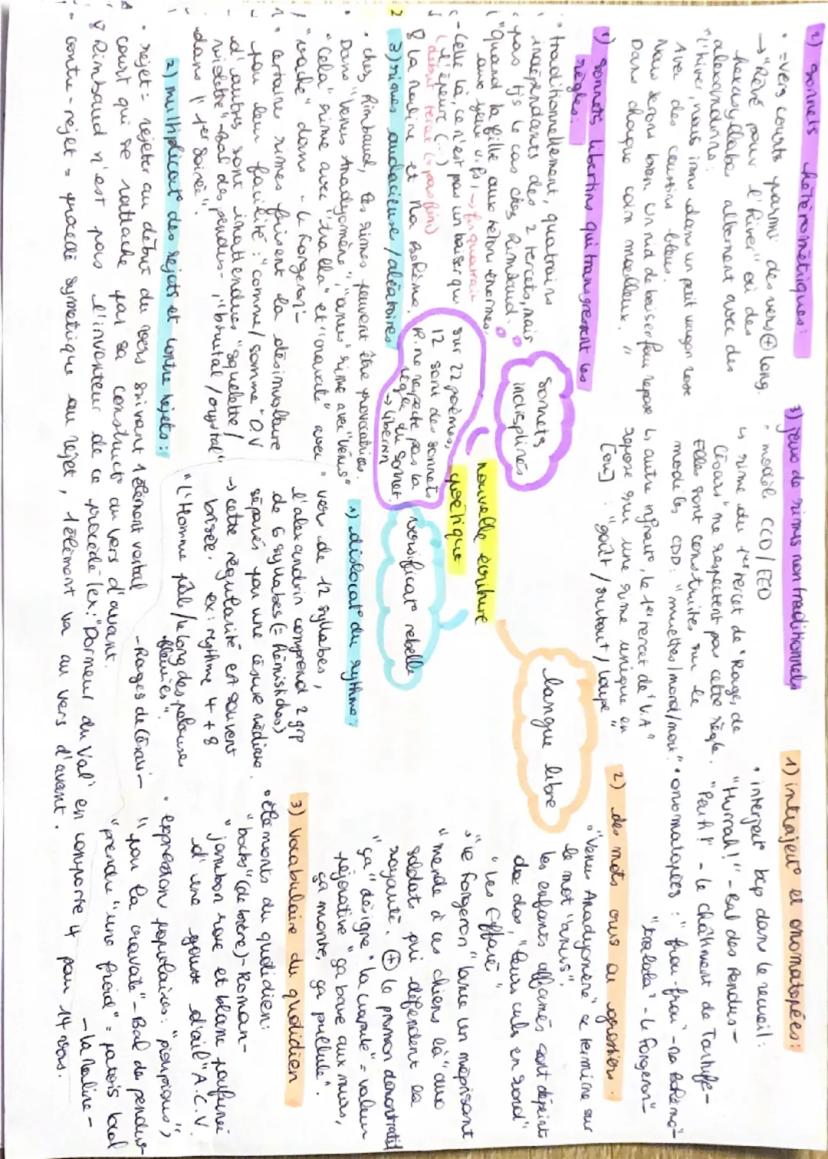 2) sonnets hétérométriques :
• = vers courts parmi des vers ⊕ long.
→ "Rêvé pour l'hiver" où des
hexasyllabe alternent avec des
alexandrins :
"L'hiver, nous irons dans un petit wagon rose
Avec des coussins bleus.
Nous serons bien. Un nid de baiser fou repose
Dans chaque coin moelleux. "
1) sonnets libertins qui transgressent les
règles :
• traditionnellement, quatrains
indépendants des 2 tercets, mais
pas tjs le cas chez Rimbaud
"quand la fille aux tétons énormes,
aux yeux vifs ! → fin quatrain
- Celle là, ce n'est pas un baiser qui
l'épeure (...)
(début tercet (= pas fin)
8 La Maline et Ma Bohème.
3) rimes audacieuse / aléatoires
• chez Rimbaud, les rimes peuvent être provocatrices.
Dans "Venus Anadyomène", "anus" rime avec "Vénus"
• "Cela" rime avec "tralla" et "cravate" avec
"vade" dans - Le Forgeron -
• certaine rimes frisent la désinvolture
pour leur facilité : comme/somme "O.V
d'autres sont inattendues "squelette /
- Bal des pendus - , "brutal / crystal"
dans "1ère soirée".
2) multiplicat° des rejets et contre rejets :
• rejet = rejeter au début du vers suivant 1 élément verbal
court qui se rattache par sa construct° au vers d'avant.
8 Rimbaud n'est pas l'inventeur de ce procédé (ex : "Dormeur du Val" en comporte 4 pour 14 vers.
- contre-rejet = procédé symetrique au rejet, 1 élément va au vers d'avant.
sonnets
indisciplinés
sur 22 poèmes,
12 sont des sonnets
R. ne respecte pas la
règle du sonnet
→ libertin
nouvelle écriture
poétique
versificat° rebelle
langue libre
3) jeux de rimes non traditionnels
• modèle CCD/EED
↳ rime du 1er tercet de "Rages de
Césars" ne respectent pas cette règle.
Elles sont construites sur le
modèles CDD : "muettes/mord/mort".
↳ autre infract°, le 1er tercet de "V.A"
repose sur une rime unique en
[ou] : "goût / surtout / loupe"
1) dislocat° du rythme :
• vers de 12 syllabes,
l'alexandrin comprend 2 grp
de 6 syllabes (= hémistiches)
séparés par une césure médiane.
→ cette régularité est souvent
brisée. ex : rythme 4 + 8
"L'Homme pâle/le long des pelouse
fleuries".
- Rages de César -
1) interject° et onomatopées :
• interject° bcp dans le recueil :
"Hurrah !" - Bal des Pendus -
"Peuh !" - Le châtiment de Tartufe -
• onomatopées : "frou-frou" - Ma Bohème -
"tralala" - Le Forgeron -
2) des mots crus au grossiers.
• "Vénus Anadyomène" se termine sur
le mot "anus"
les enfants affamés sont dépeints
de dos, "leurs culs en rond"
"Les Effarés"
• "Le Forgeron" lance un méprisant
"merde à ces chiens là" aux
soldats qui défendent la
royauté. ⊕ le pronom démonstratif
"ça" désigne "la crapule" = valeur
péjorative "ça bave aux murs,
ça monte, ça pullule".
3) Vocabulaire du quotidien
• éléments du quotidien :
"bocks" (de bière) - Roman -
"jambon rose et blanc parfumé
d'une gousse d'ail" A.C.V.
• expression populaires : "pioupious",
"pou la cravate" - Bal des pendus -
"prendu "une froid" = patois local
- La Maline -